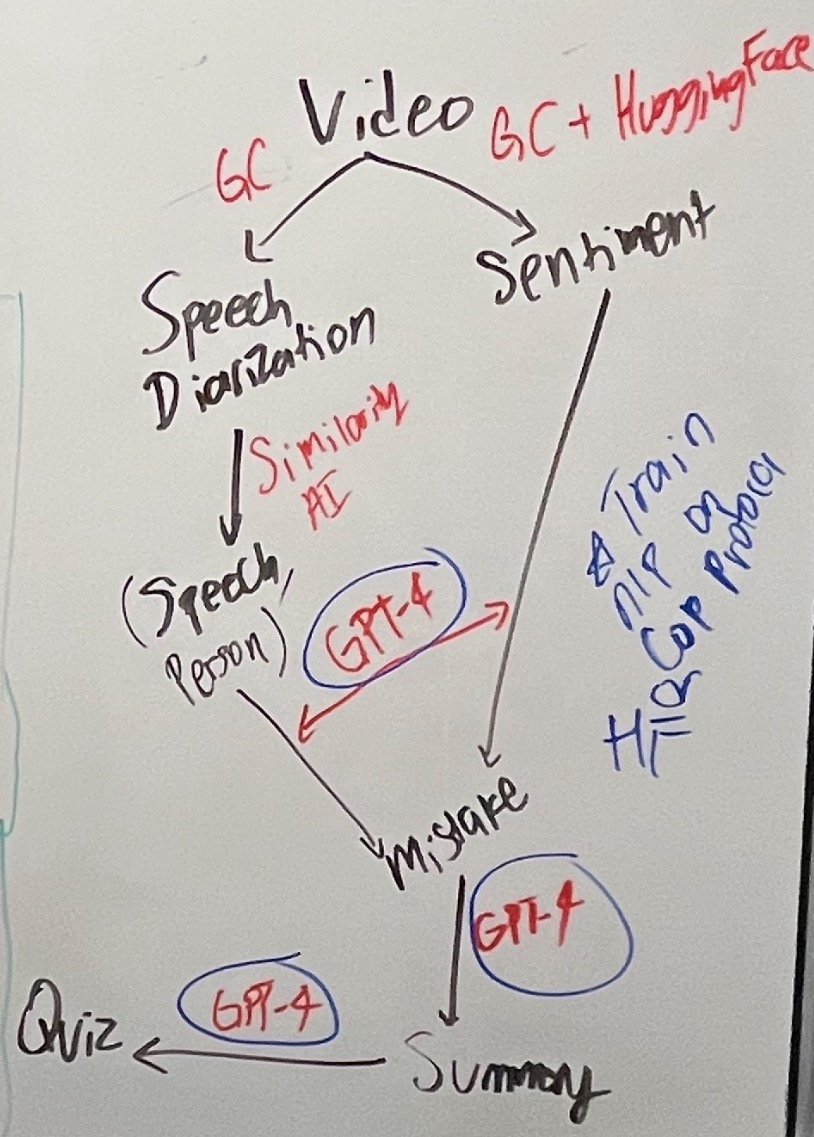 Video
GC
GC + HuggingFace
Speech
Diarization
Sentiment
Similarity
AI
(Speech,
Person)
GPT-4
☆ Train
nlp on
Cop Protocol
Mistake
GPT-4
GPT-4
Quiz
Summary